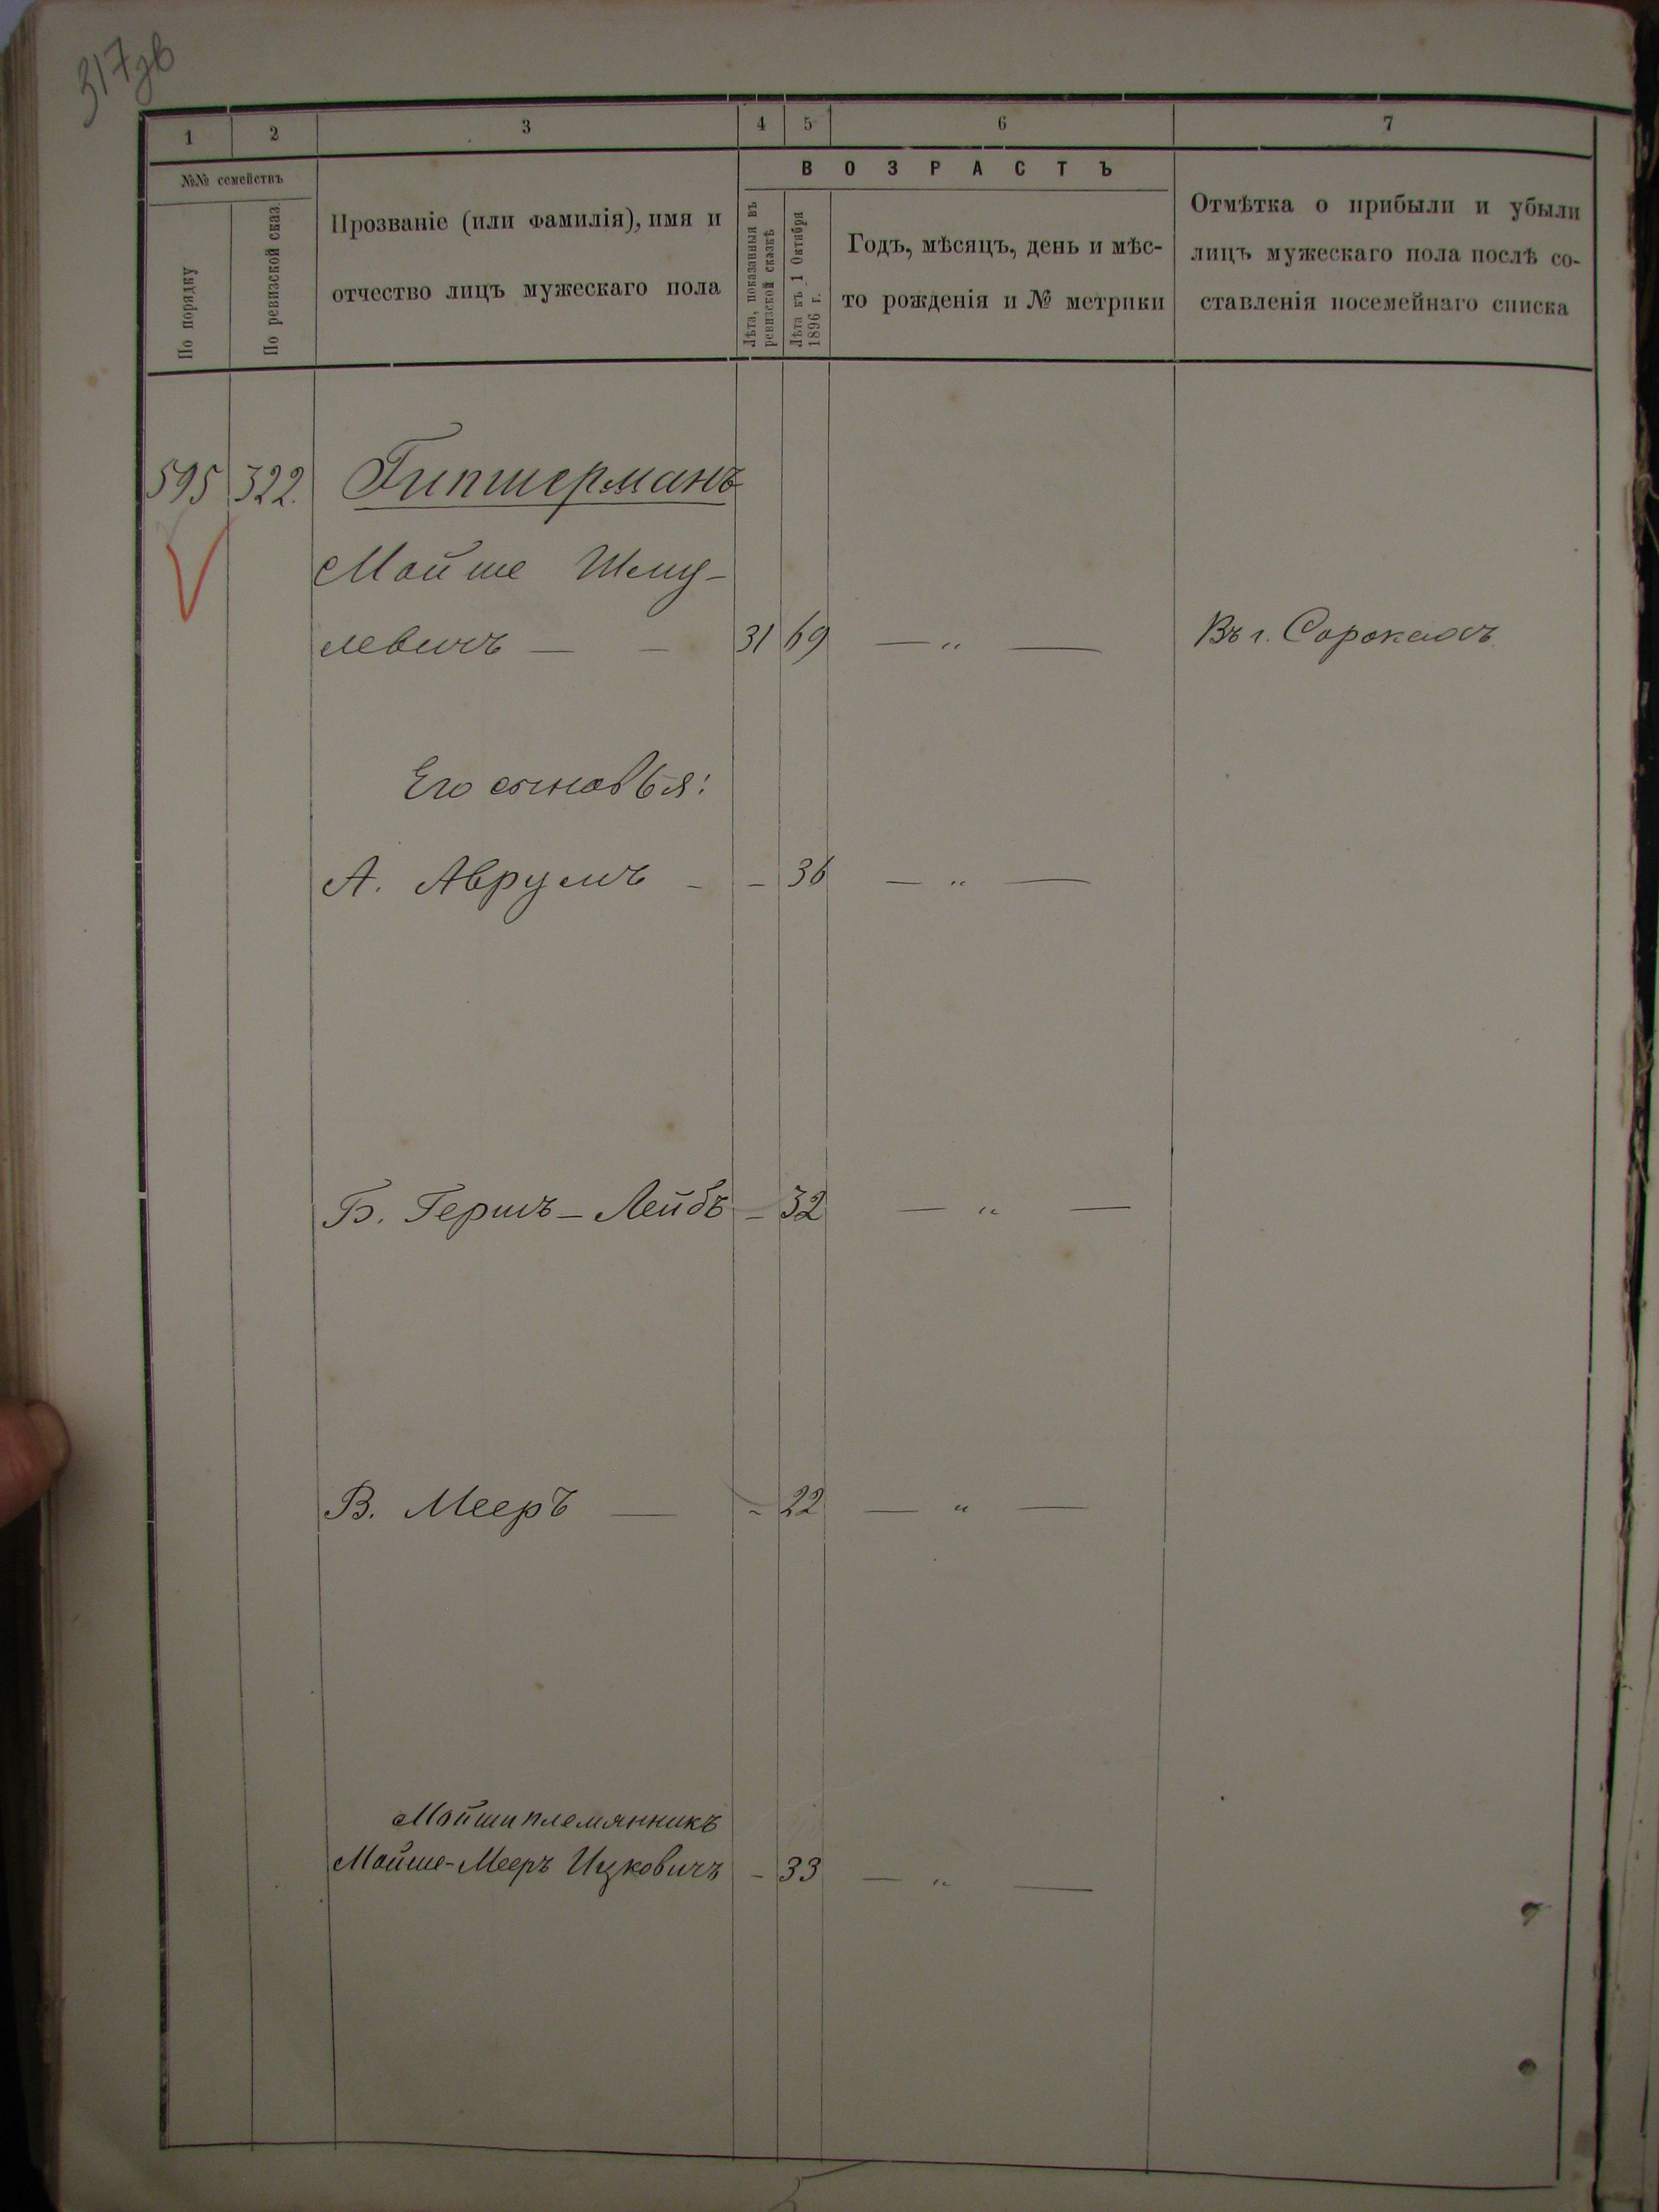 317зв
1 2 3 4 5 6 7
№№ семействъ
По порядку
По ревизской сказ.
Прозваніе (или фамилія), имя и
отчество лицъ мужескаго пола
В О З Р А С Т Ъ
Лѣта, показанныя въ
ревизской сказкѣ
Лѣта къ 1 Октября
1896 г.
Годъ, мѣсяцъ, день и мѣс-
то рожденія и № метрики
Отмѣтка о прибыли и убыли
лицъ мужескаго пола послѣ со-
ставленія посемейнаго списка
595 322. Гипшерманъ
Мойше Шму-
левичъ — — 31 69 — „ — Въ г. Сорокахъ
Его сыновья:
А. Аврумъ - - 36 — „ —
Б. Гершъ-Лейбъ - 32 — „ —
В. Мееръ — - 22 — „ —
Мойши племянникъ
Мойше-Мееръ Ицковичъ - 33 — „ —